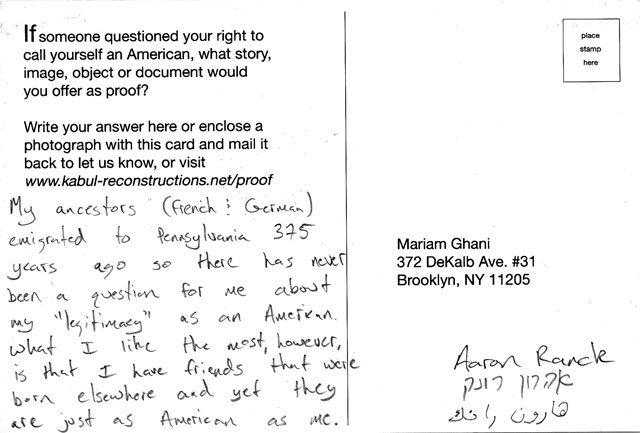 If someone questioned your right to
call yourself an American, what story,
image, object or document would
you offer as proof?
Write your answer here or enclose a
photograph with this card and mail it
back to let us know, or visit
www.kabul-reconstructions.net/proof
My ancestors (French & German)
emigrated to Pennsylvania 375
years ago so there has never
been a question for me about
my "legitimacy" as an American.
What I like the most, however,
is that I have friends that were
born elsewhere and yet they
are just as American as me.
place
stamp
here
Mariam Ghani
372 DeKalb Ave. #31
Brooklyn, NY 11205
Aaron Ranck
אהרון רונק
هارون رانك